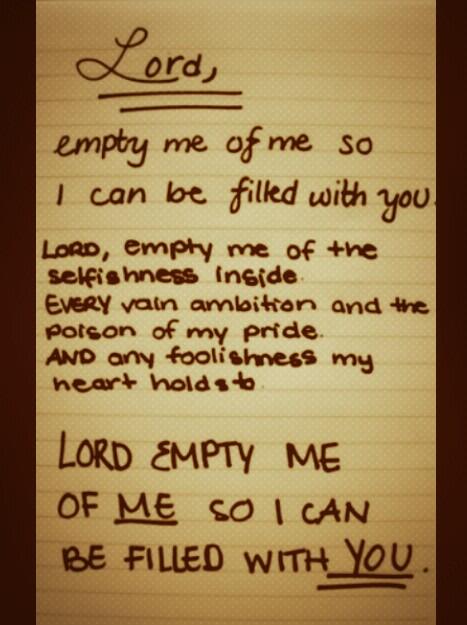 Lord,
empty me of me so
I can be filled with you.
LORD, empty me of the
selfishness inside.
EVERY vain ambition and the
poison of my pride.
AND any foolishness my
heart holds to.
LORD EMPTY ME
OF ME SO I CAN
BE FILLED WITH YOU.